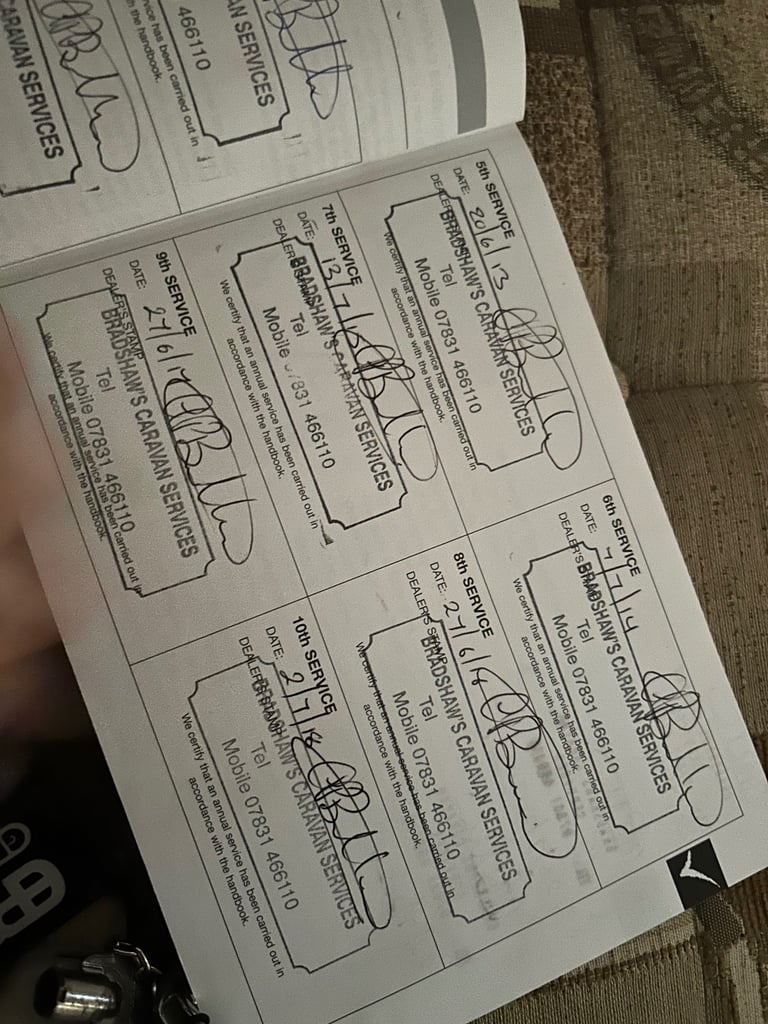 CARAVAN SERVICES
466110
service has been carried out in
the handbook.
CARAVAN SERVICES
5th SERVICE
DATE: 20/6/13
DEALER'S STAMP
BRADSHAW'S CARAVAN SERVICES
Tel
Mobile 07831 466110
We certify that an annual service has been carried out in
accordance with the handbook.
6th SERVICE
DATE: 7/7/14
DEALER'S STAMP
BRADSHAW'S CARAVAN SERVICES
Tel
Mobile 07831 466110
We certify that an annual service has been carried out in
accordance with the handbook.
7th SERVICE
DATE: 13/7/15
DEALER'S STAMP
BRADSHAW'S CARAVAN SERVICES
Tel
Mobile 07831 466110
We certify that an annual service has been carried out in
accordance with the handbook.
8th SERVICE
DATE: 27/6/16
DEALER'S STAMP
BRADSHAW'S CARAVAN SERVICES
Tel
Mobile 07831 466110
We certify that an annual service has been carried out in
accordance with the handbook.
9th SERVICE
DATE: 27/6/17
DEALER'S STAMP
BRADSHAW'S CARAVAN SERVICES
Tel
Mobile 07831 466110
We certify that an annual service has been carried out in
accordance with the handbook.
10th SERVICE
DATE: 2/7/18
DEALER'S STAMP
BRADSHAW'S CARAVAN SERVICES
Tel
Mobile 07831 466110
We certify that an annual service has been carried out in
accordance with the handbook.